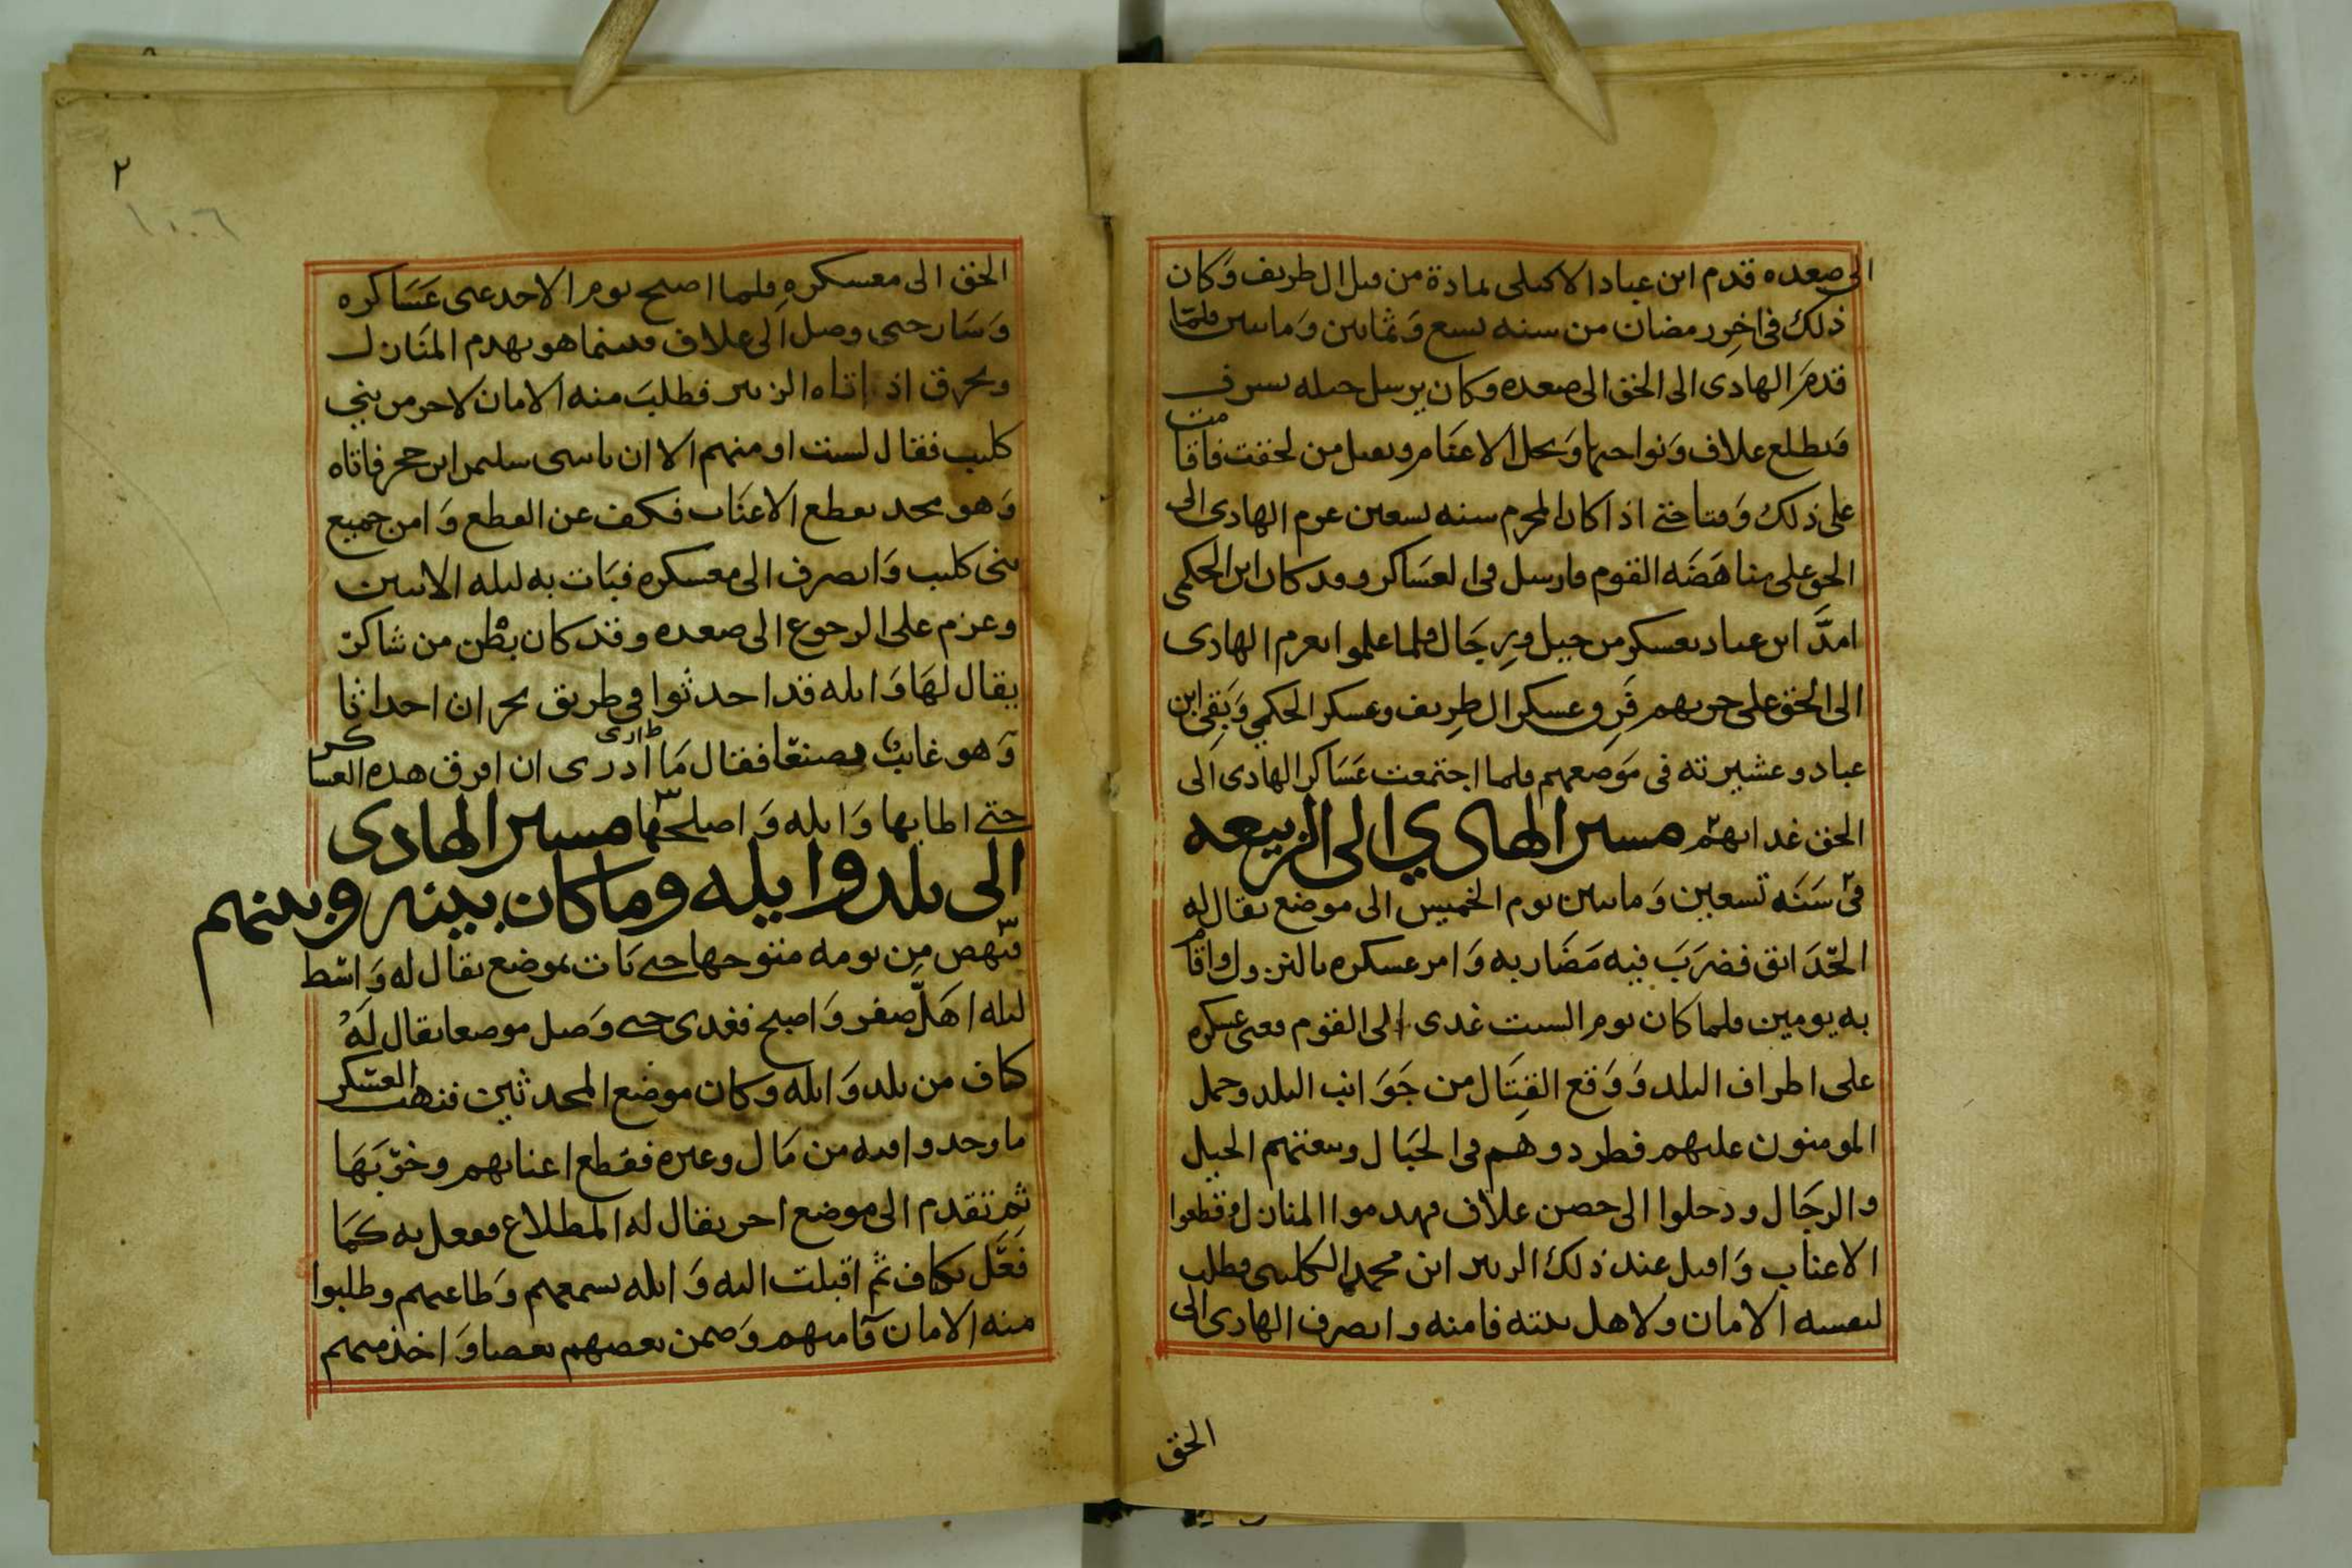 الى صعده قدم ابن عباد الاكيلى بمادة من قبل ال طريف وَكان
ذلك فى اخِر رمضان من سنه تسع وَثمانين وَماىتين فلمّا
قدمَ الهادى الى الحقّ الى صعده وكان يرسل خيله تسرف
فتطلع علاف وَنواحيها وَتحل الاعنَام وتقبل من لحقت فاقامت
على ذلك وَقتا حتى اذا كان المحرم سنه تسعين عزم الهادى الى
الحق على مناهَضَه القوم فارسل فى العسَاكر وقد كان ابن الحكمى
امدَّ ابن عباد بعسكر من خيل ورِجَال فلما علموا بعزم الهادى
الى الحق على حربهم فَر وعسكر ال طرِيف وعسكر الحكمي وَبَقى ابن
عباد وعشيرته فى مَوضعهم فلما اجتمعت عَسَاكر الهادى الى
الحق غدا بهم مسير الهادي الى الربيعه
فى سَنَه تسعين وَماىتين يوم الخميس الى موضع يقال له
الحَدَائق فضرَبَ فيه مَضَاربه وَامر عسكره بالنزول واقام
به يومين فلما كان يوم السبت غدى الى القوم فعبى عسكره
على اطراف البلد وَوَقع القِتَال من جَوَانب البلد وحمل
المومنون عليهم فطردوهم فى الجبَال وتبعتهم الخيل
والرجَال ودخلوا الى حصن علاف فهدموا المنازل وقطعوا
الاعناب وَاقبل عند ذلك الزبير ابن محمد الكليبى فطلب
لنفسه الامان ولاهل بيته فامنه وانصرف الهادى الى
الحق
٢
١٠٦
الحق الى معسكرهِ فلما اصبح يوم الاحد عبى عَسَاكره
وَسَار حتى وصل الى علاف فبينما هو يهدم المنَازل
ويحرق اذ اتاه الزبير فطلبَ منه الامان لاخر من بني
كليب فقال لست اومنهم الا ان ياتى سليم ابن حجر فاتاه
وَهو مجد بقطع الاعنَاب فكف عن القطع وَامن جميع
بنى كليب وَانصرف الى معسكره فبَات به ليله الاثنين
وعزم على الرجوع الى صعده وقد كان بطْن من شاكر
يقال لهَا وَايله قد احدثوا فى طريق نجران احداثا
وَهو غائب بصنعَا فقال مَا ارى ادرى ان افرق هذه العساكر
حتى اطا بها وَايله وَاصلحها مسير الهادى
الى بلد وايله وما كان بينه وبينهم
فنهض مِن يومه متوجها حتى بَات بموضع يقال له وَاسط
ليله اهَلّ صفر وَاصبح فغدى حتى وَصل موضعا يقال لَهُ
كتاف من بلد وَايله وكان موضع المحدثين فنهب العسْكر
ما وجدوا فيه من مَال وغيره فقطع اعنابهم وخرّبَهَا
ثم تقدم الى موضع اخر يقال له المطلاع ففعل به كمَا
فَعَل بكتاف ثم اقبلت اليه وَايله بسمعهم وَطاعتهم وطلبوا
منه الامان فامنهم وَضمن بعضهم بعضا وَاخذ منهم